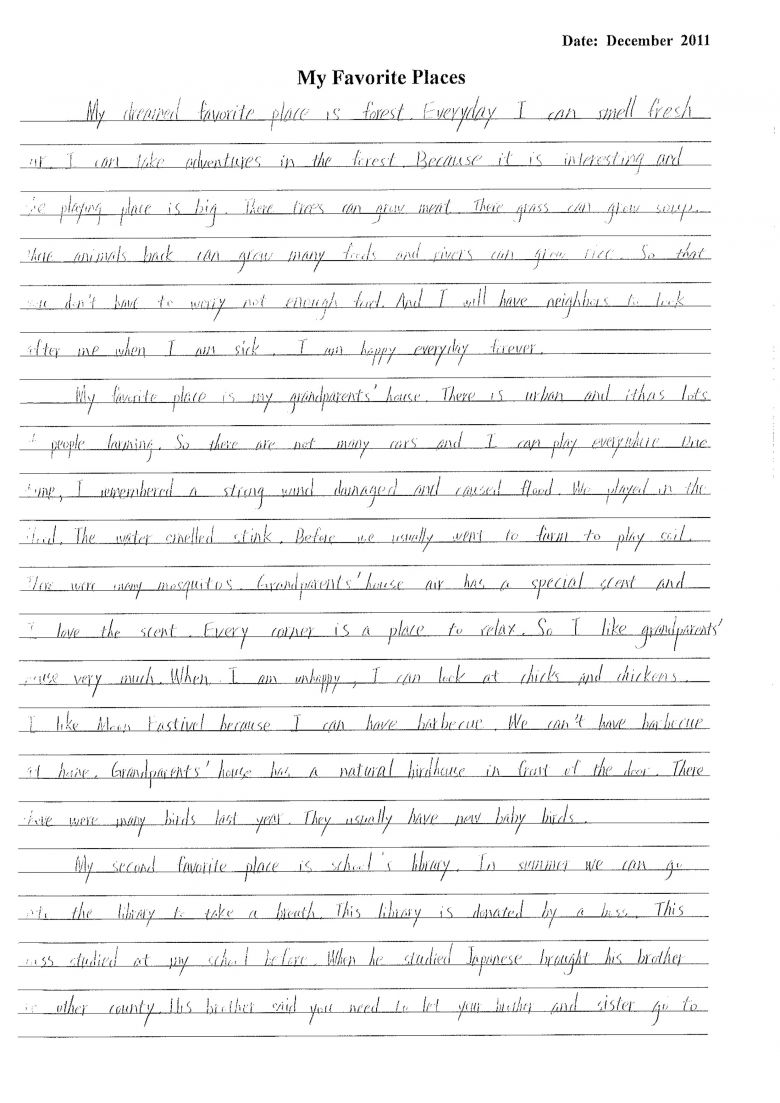 Date: December 2011
My Favorite Places
My dreamed favorite place is forest. Everyday I can smell fresh
air. I can take adventures in the forest. Because it is interesting and
the playing place is big. There trees can grow meat. There grass can grow soup.
There animals back can grow many foods and rivers can grow rice. So that
you don't have to worry not enough food. And I will have neighbors to look
after me when I am sick. I am happy everyday forever.
My favorite place is my grandparents' house. There is urban and ithas lots
of people farming. So there are not many cars and I can play everywhere. One
time, I remembered a strong wind damaged and caused flood. We played in the
flood. The water smelled stink. Before we usually went to farm to play soil.
There were many mosquitos. Grandparents' house air has a special scent and
I love the scent. Every corner is a place to relax. So I like grandparents'
house very much. When I am unhappy, I can look at chicks and chickens.
I like Moon Fastivel because I can have barbecue. We can't have barbecue
at home. Grandparents' house has a natural birdhouse in front of the door. There
were many birds last year. They usually have new baby birds.
My second favorite place is school's library. In summer we can go
the library to take a breath. This library is donated by a boss. This
boss studied at my school before. When he studied Japanese brought his brother
to other county. His brother said you need to let your brother and sister go to